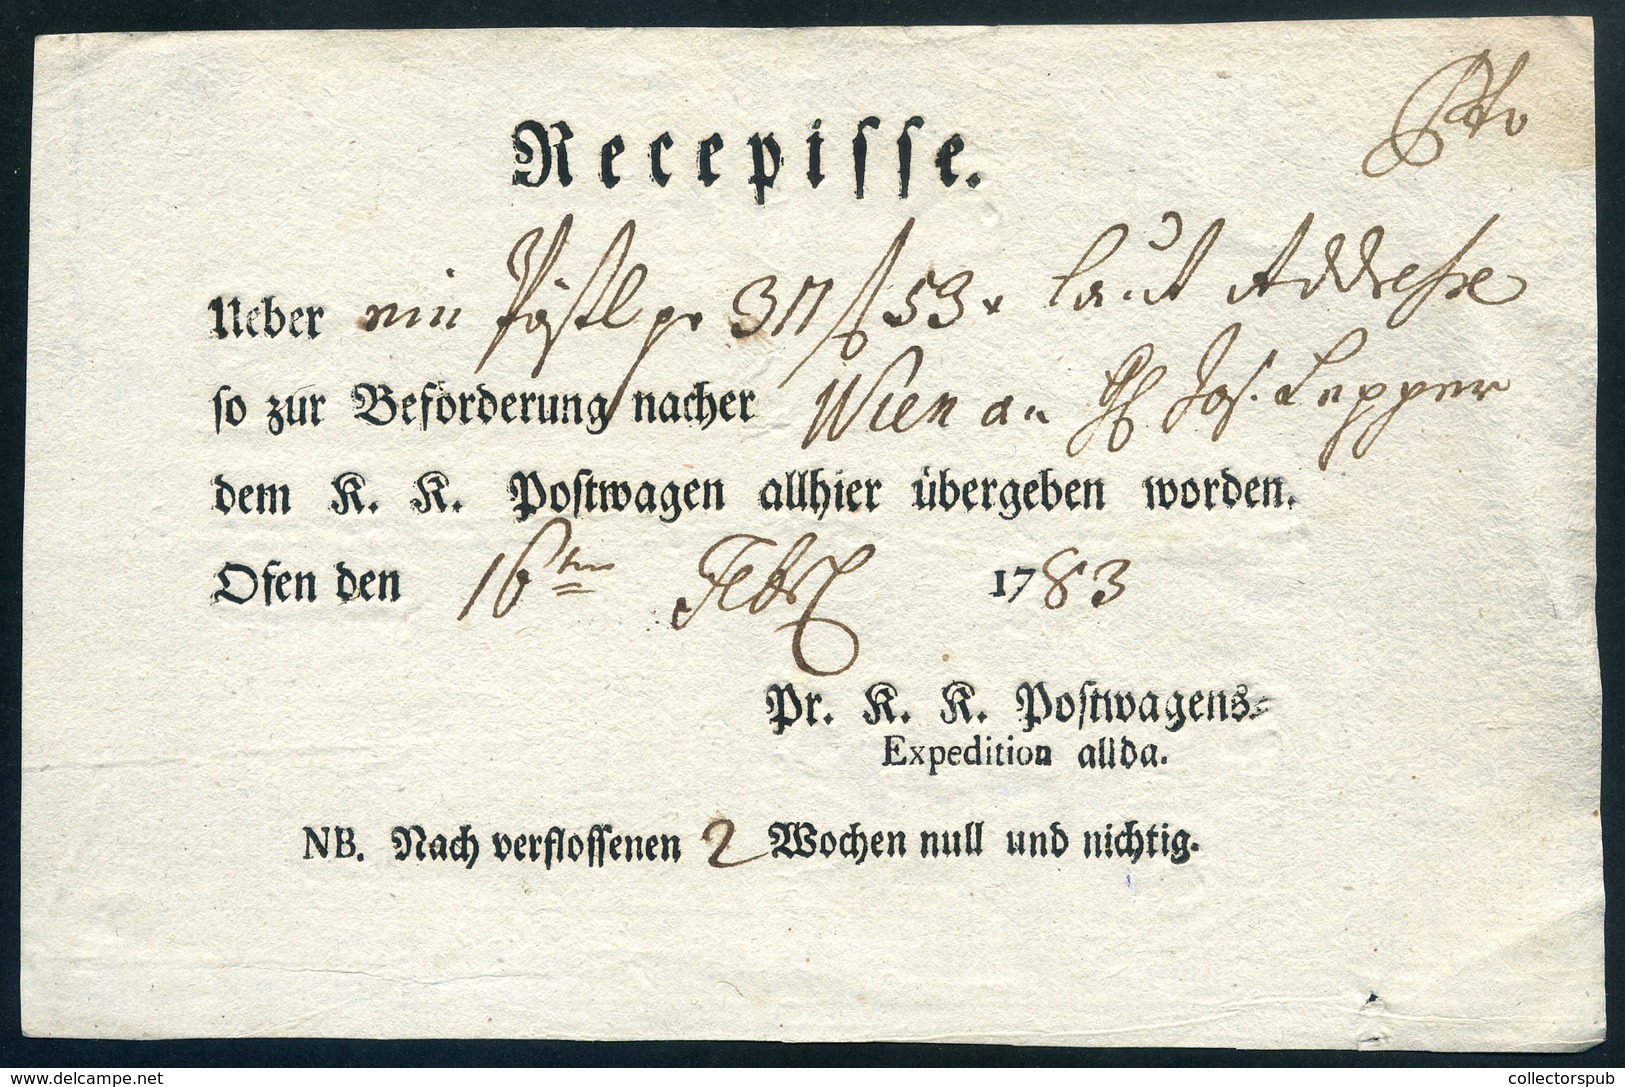 Pto
Recepisse.
Ueber ein Pästl pr 37 f 53 x laut Addresse
so zur Beförderung nacher Wien an H Jos. Lepper
dem K. K. Postwagen allhier übergeben worden.
Ofen den 16ten Febr 1783
Pr. K. K. Postwagens-
Expedition allda.
NB. Nach verflossenen 2 Wochen null und nichtig.
Delcampe.net
collectorspub